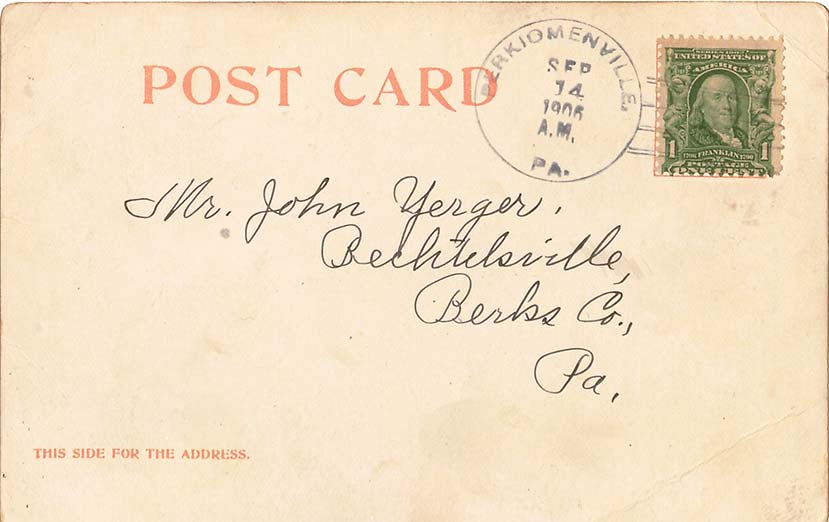 POST CARD
PERKIOMENVILLE,
SEP
14
1906
A.M.
PA.
SERIES 1902
UNITED STATES OF
AMERICA
1
FRANKLIN
1
POSTAGE
Mr. John Yerger.
Bechtelsville,
Berks Co.,
Pa,
THIS SIDE FOR THE ADDRESS.